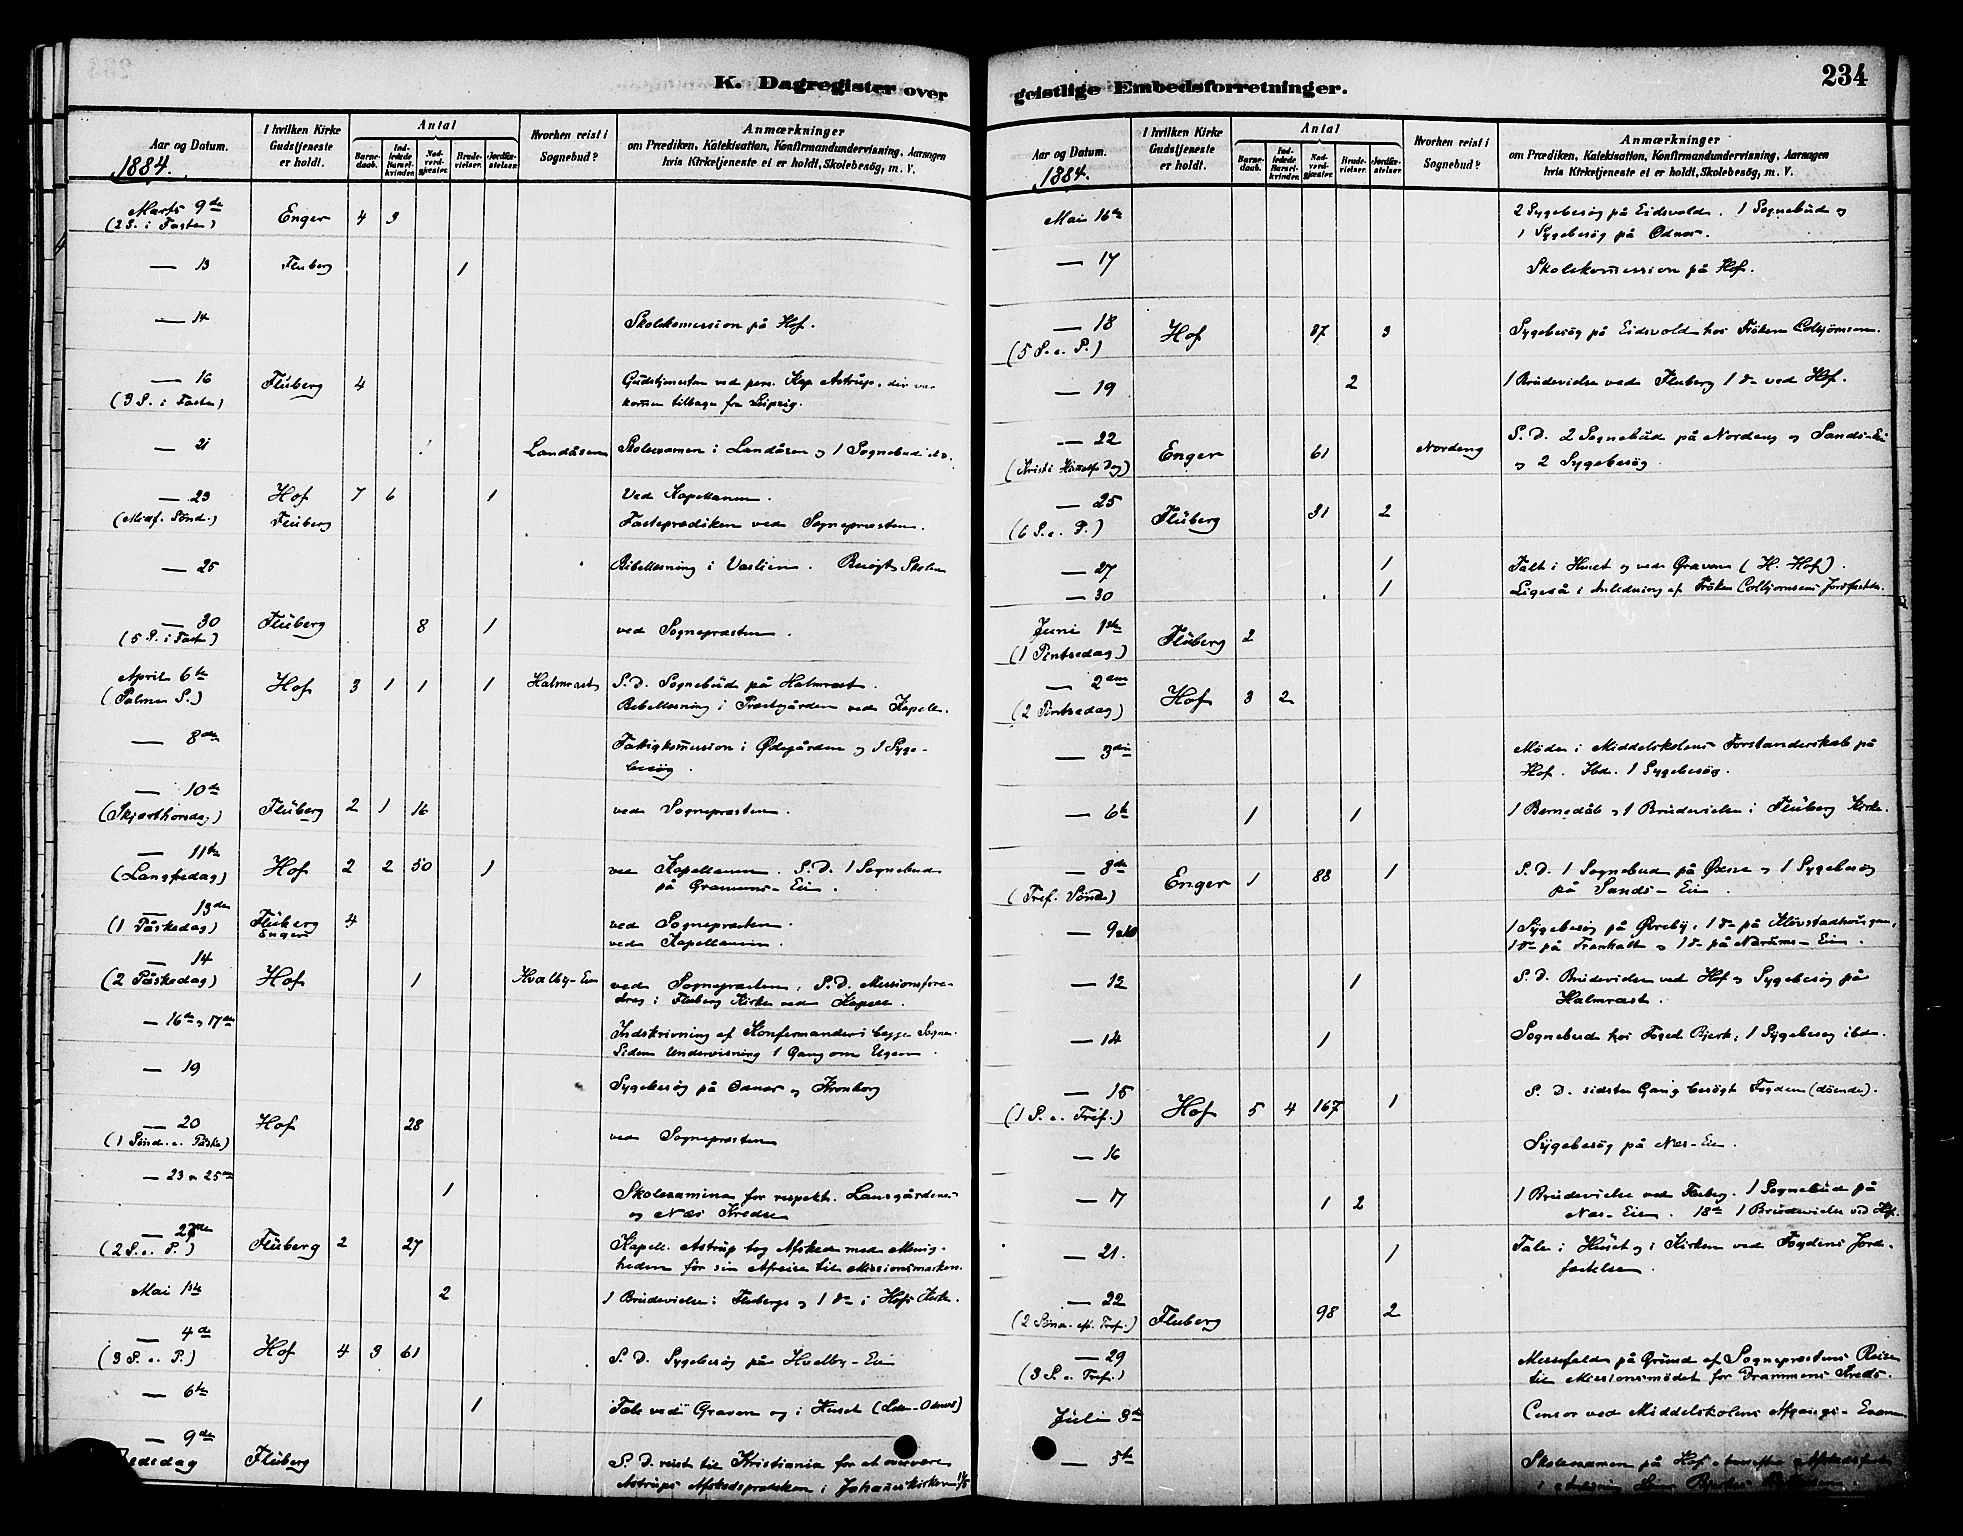 K. Dagregister over
Aar og Datum.
1884.
I hvilken Kirke Gudstjeneste er holdt.
Antal
Barnedaab.
Indledede Barselkvinder.
Nadverdgjæster.
Brudevielser.
Jordfæstelser.
Hvorhen reist i Sognebud?
Anmærkninger
om Prædiken, Katekisation, Konfirmandundervisning, Aarsagen
hvis Kirketjeneste ei er holdt, Skolebesøg, m. V.
Marts 9de Enger 4 3
(2 S. i Fasten)
— 13 Fluberg 1
— 14 Skolekomission på Hof.
— 16 Fluberg 4 Gudstjenesten ved pers. Kap. Astrup, der var
(3 S. i Fasten) kommen tilbage fra Leipzig.
— 21 Landåsen Skoleexamen i Landåsen og 1 Sognebud
— 23 Hof 7 6 1 Ved Kapellanen.
(Midf. Sønd.) Fluberg Fasteprædiken ved Sognepræsten.
— 25 Bibellæsning i Vaslien. Besøgt Skolen
— 30 Fluberg 8 1 ved Sognepræsten.
(5 S. i Fasten)
April 6te Hof 3 1 1 1 Halmrast S. D. Sognebud på Halmrast.
(Palme S.) Bibellæsning i Præstgården ved Kapell.
— 8de Fattigkomission i Ødegården og 1 Syge-
besøg.
— 10de
(Skjærthorsdag) Fluberg 2 1 16 ved Sognepræsten.
— 11te
(Langfredag) Hof 2 2 50 1 ved Kapellanen. S. D. 1 Sognebud
på Eie.
— 13de
(1 Påskedag) Fluberg 4 ved Sognepræsten.
Enger ved Kapellanen.
— 14
(2 Påskedag) Hof 1 Hvalby-Eie ved Sognepræsten. S. D. Missionsfore-
drag i Fluberg Kirke ved Kapell.
— 16de og 17de Indskrivning af Konfirmander i begge Sogne.
Siden Undervisning 1 Gang om Ugen.
— 19 Sygebesøg på Odnæs og Kronborg
— 20 Hof 28 ved Sognepræsten
(1 Sønd. e. Påske)
— 23 og 25de 1 Skoleexamina for respekt. Landgårdenes
og Næs Kredse
— 27de
(2 S. e. P.) Fluberg 2 27 Kapell. Astrup tog Afsked med Menig-
heden før sin Afreise til Missionsmarken.
Mai 1ste 2 1 Brudevielse i Flubergs og 1 do i Hofs Kirke.
— 4de
(3 S. e. P.) Hof 4 3 61 S. D. Sygebesøg på Hvalby-Eie
— 6te 1 Tale ved Graven og i Huset
— 9de
Bededag Fluberg S. D. reist til Kristiania for at overvære
Astrups Afskedsprædiken i Johanneskirken 11/5
234
geistlige Embedsforretninger.
Aar og Datum.
1884.
I hvilken Kirke Gudstjeneste er holdt.
Antal
Barnedaab.
Indledede Barselkvinder.
Nadverdgjæster.
Brudevielser.
Jordfæstelser.
Hvorhen reist i Sognebud?
Anmærkninger
om Prædiken, Katekisation, Konfirmandundervisning, Aarsagen
hvis Kirketjeneste ei er holdt, Skolebesøg, m. V.
Mai 16de 2 Sygebesøg på Eidsvold. 1 Sognebud og
1 Sygebesøg på Odnæs.
— 17 Skolekomission på Hof.
— 18 Hof 37 3 Sygebesøg på Eidsvold hos Frøken Colbjørnsen.
(5 S. e. P.)
— 19 2 1 Brudevielse ved Fluberg 1 do ved Hof.
— 22 Enger 61 Nordeng S. D. 2 Sognebud på Nordeng og Sands-Eie
(Kristi Himmelf. Dag) og 2 Sygebesøg
— 25 Fluberg 31 2
(6 S. e. P.)
— 27 1 Talt i Huset og ved Graven (H. Hof).
— 30 1 Ligeså i Anledning af Frøken Colbjørnsens Jordfæstelse.
Juni 1ste Fluberg 2
(1 Pintsedag)
— 2den Hof 3 2
(2 Pintsedag)
— 3die Møde i Middelskolens Forstanderskab på
Hof. Ibd. 1 Sygebesøg.
— 6te 1 1 1 Barnedåb og 1 Brudevielse i Fluberg Kirke.
— 8de Enger 1 88 1 S. D. 1 Sognebud på Øxne og 1 Sygebesøg
(Tref. Sønd.) på Sands-Eie
— 9nde 1 Sygebesøg på Øvreby, 1 do på Kløvstadhougen,
1 do på og 1 do på Narums-Eie.
— 12 1 S. D. Brudevielse ved Hof og Sygebesøg på
Halmrast.
— 14 1 Sognebud hos Foged Bjerk; 1 Sygebesøg ibd.
— 15 Hof 5 4 167 1 S. D. sidste Gang besøgt Fogden (døende).
(1 S. e. Tref.)
— 16 Sygebesøg på Næs-Eie.
— 17 1 2 1 Brudevielse ved Fluberg. 1 Sognebud på
Næs-Eie. 18de 1 Brudevielse ved Hof.
— 21. 1 Tale i Huset og i Kirken ved Fogdens Jord-
fæstelse.
— 22 Fluberg 98 2
(2 Sønd. eft. Tref.)
— 29 Messefald på Grund af Sognepræstens Reise
(3 S. e. Tref.) til Missionsmødet for Drammens Kreds.
Juli 3de Censor ved Middelskolens Afgangs-Examen
— 5te Skoleexamen på Hof